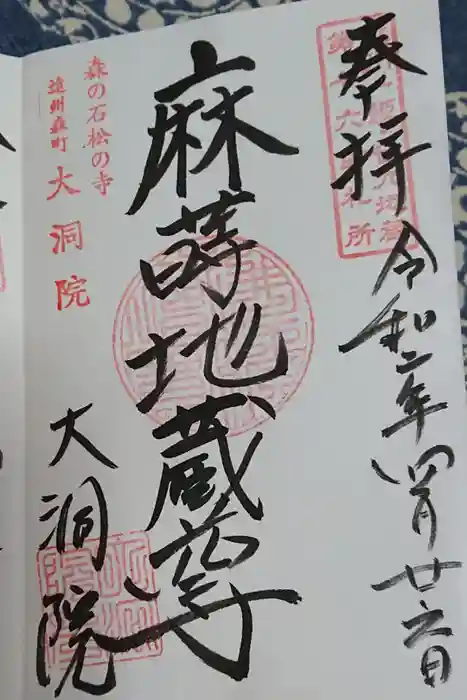 奉拝
令和二年四月廿六日
麻蒔地蔵尊
大洞院
森の石松の寺
遠州森町
大洞院